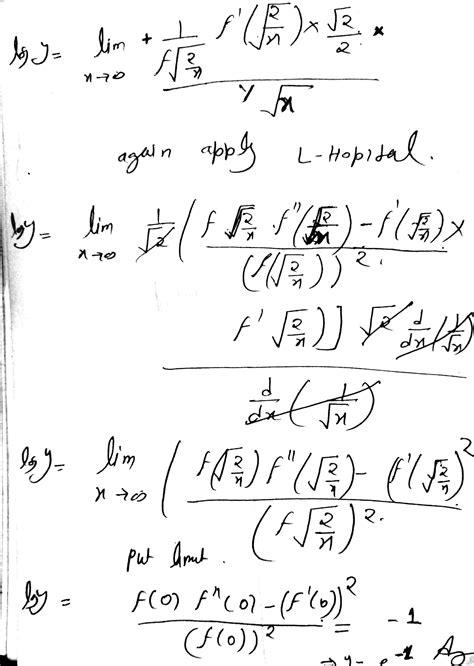 log y = lim n→∞ + 1/(f√(2/n)) f'(√(2/n)) × √2/2 × / (1/√n)
again apply L-Hopital.
log y = lim n→∞ 1/√2 ( f √(2/n) . f''(√(2/n)) - f'(√(2/n)) × / (f(√(2/n)))².
f' √(2/n) ) ] √2 d/dn (1/√n)
d/dx (1/√n)
log y = lim n→∞ ( f(√(2/n)) f''(√(2/n)) - (f'(√(2/n))² / (f √(2/n))².
put limit .
log y = f(0) f''(0) - (f'(0))² / (f(0))² = -1
⇒ y = e⁻¹ Ans